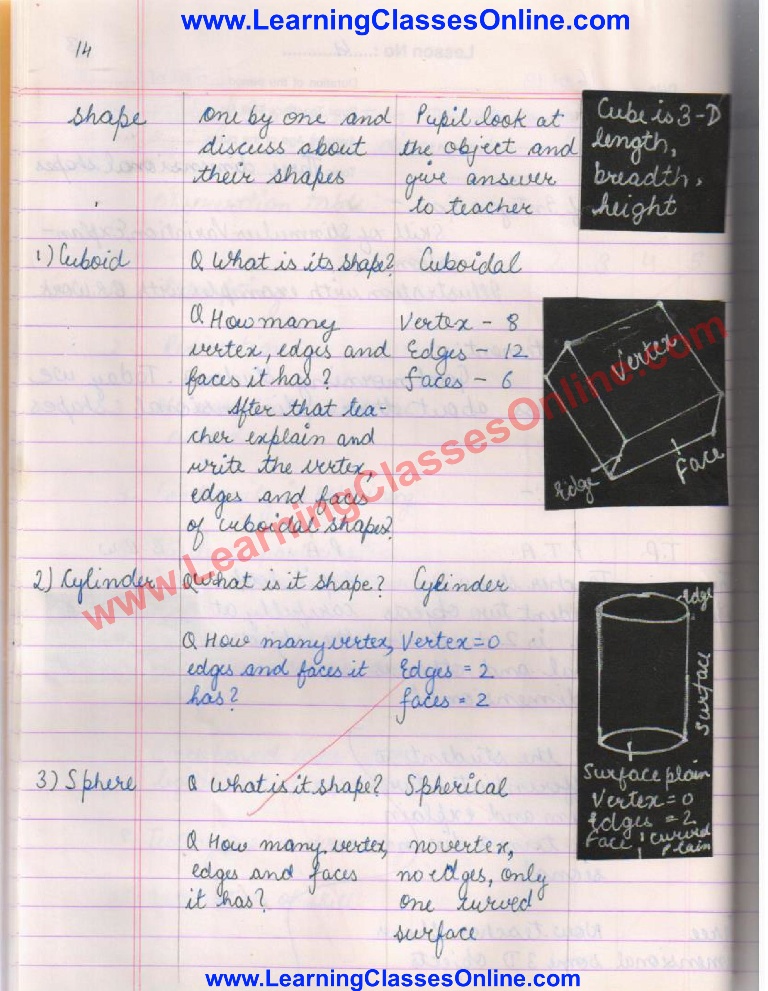 www.LearningClassesOnline.com
14
shape
one by one and
discuss about
their shapes
Pupil look at
the object and
give answer
to teacher
Cube is 3-D
length,
breadth,
height
1) Cuboid
Q What is its shape?
Cuboidal
Q How many
vertex, edges and
faces it has?
After that tea-
cher explain and
write the vertex,
edges and faces
of cuboidal shapes?
Vertex - 8
Edges - 12
faces - 6
Vertex
Face
Edge
www.LearningClassesOnline.com
2) Cylinder
Q What is it shape?
Cylinder
Q How many vertex,
edges and faces it
has?
Vertex = 0
Edges = 2
faces = 2
Edge
Surface
Surface plain
Vertex = 0
Edges = 2
Face 1 curved
plain
3) Sphere
Q What is it shape?
Spherical
Q How many vertex,
edges and faces
it has?
no vertex,
no edges, only
one curved
surface
www.LearningClassesOnline.com